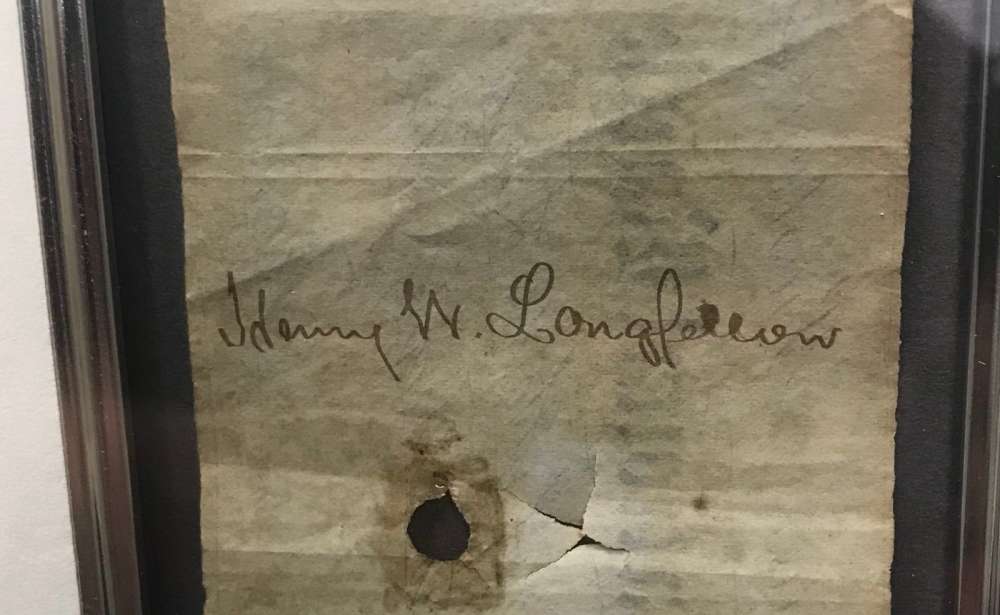 Henry W. Longfellow